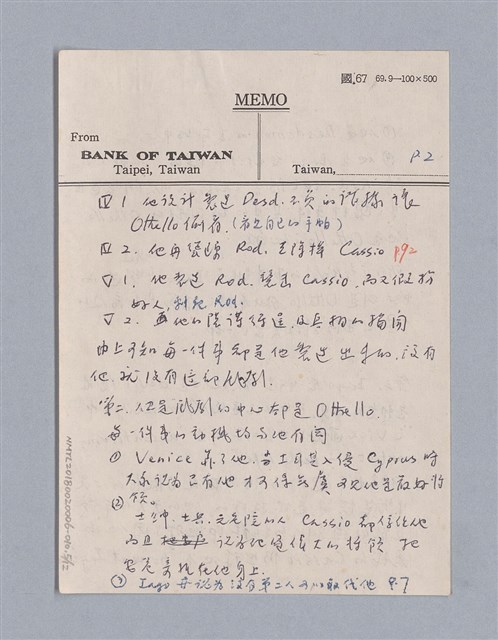 國.67 69.9—100×500
MEMO
From
BANK OF TAIWAN
Taipei, Taiwan
Taiwan,
P.2
Ⅳ 1. 他設計製造 Desd. 不貞的證據讓
Othello 偷看 (自己的手帕)
Ⅳ 2. 他再慫恿 Rod. 去除掉 Cassio p92
Ⅴ 1. 他製造 Rod. 襲擊 Cassio, 而又假扮
好人, 刺死 Rod.
Ⅴ 2. 他的陰謀得逞, 及真相的揭開
由上可知每一件事都是他製造出來的, 沒有
他, 就沒有這部戲劇.
第二. 但是戲劇的中心却是 Othello.
每一件事的動機均與他有關
① Venice 靠了他. 當土耳其入侵 Cyprus 時
大家認為只有他才可保無虞 可見他是最好的將
領.
② 士紳. 士兵. 元老院的人 Cassio 都信任他
而且 認為他是偉大的將領 把
安危寄託在他身上.
③ Iago 亦認為沒有第二人可以取代他 P.7
NMTL20180020006-010.5/12